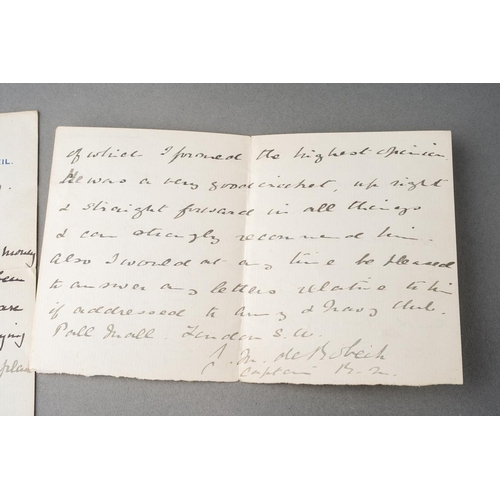 of which I formed the highest opinion
He was a very good cricket, up right
& straight forward in all things
& I can strongly recommend him.
Also I would at any time be pleased
to answer any letters relative to him
if addressed to Army & Navy Club.
Pall Mall. London S.W.
J. M. de Robeck
Captain R.N.
IL.
Monday
been
are
ying
plain